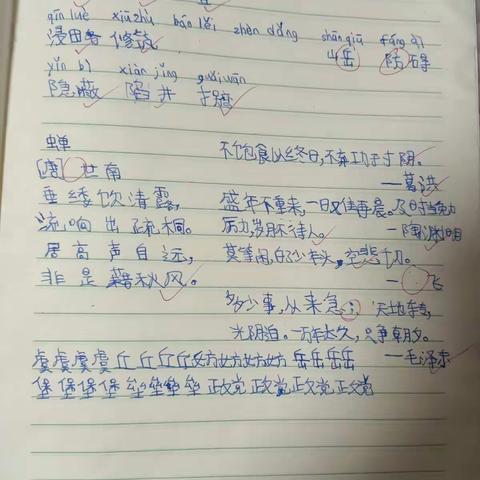 qīn luè xiū zhù bǎn lěi zhèn dǒng shān qiū fáng ài
浸田各 修筑 山岳 防碍
yǐn bì xiàn jǐng guǎi wān
隐蔽 陷井 拐弯
蝉
不饱食以终日,不弃功于寸阴。
[唐] 世南
——葛洪
垂緌饮清露,
盛年不重来,一日难再晨。及时当勉力
流响出疏桐。
厉力,岁月不待人。
——陶渊明
居高声自远,
莫等闲,白了少年头,空悲切。
非是藉秋风。
— 飞
多少事,从来急; 天地转,
光阴迫。一万年太久,只争朝夕。
——毛泽东
虞虞虞虞丘丘丘丘妨妨妨妨岳岳岳岳
堡堡堡堡垒垒垒垒政党政党政党政党